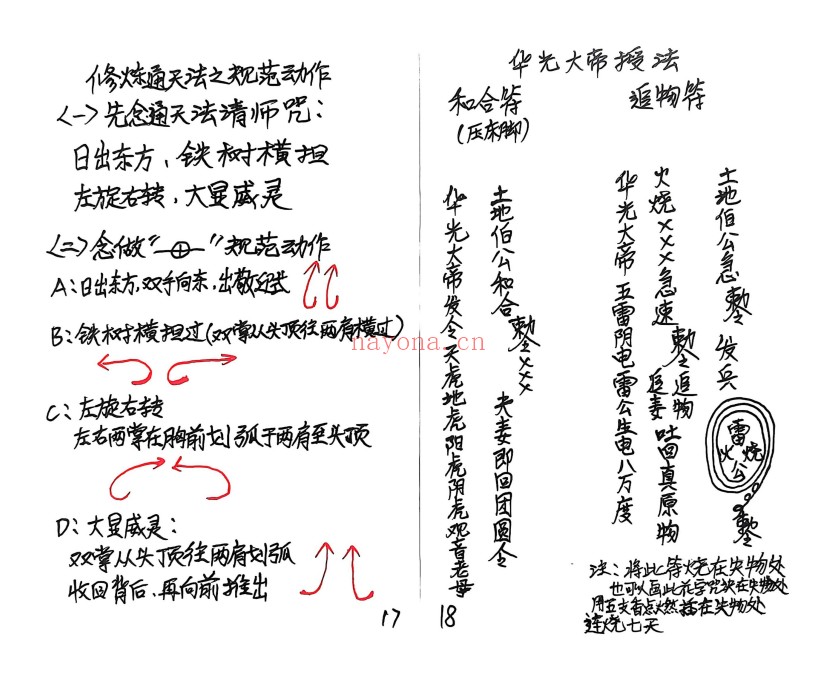 修炼通天法之规范动作
<一>先念通天法请师咒:
日出东方,铁树横担
左旋右转,大显威灵
<二>念做“⊕”规范动作
A:日出东方,双手向东,出散(迎)式
B:铁树横担过(双掌从头顶往两肩横过)
C:左旋右转
左右两掌在胸前划弧于两肩至头顶
D:大显威灵:
双掌从头顶往两肩划弧
收回背后、再向前推出
17
华光大帝授法
和合符
(压床脚)
追物符
华光大帝发令天虎地虎阳虎阴虎观音老母
土地伯公和合 敕令××× 夫妻即回团圆令
华光大帝 五雷阴电雷公生电八万度
火烧×××急速 敕令追物 追妻吐回真原物
土地伯公急敕令 发兵
雷
火 烧
公
敕令
注:将此符烧在失物处
也可以画此花字咒决在失物处
用五支香点燃插在失物处
连烧七天
18
nayona.cn